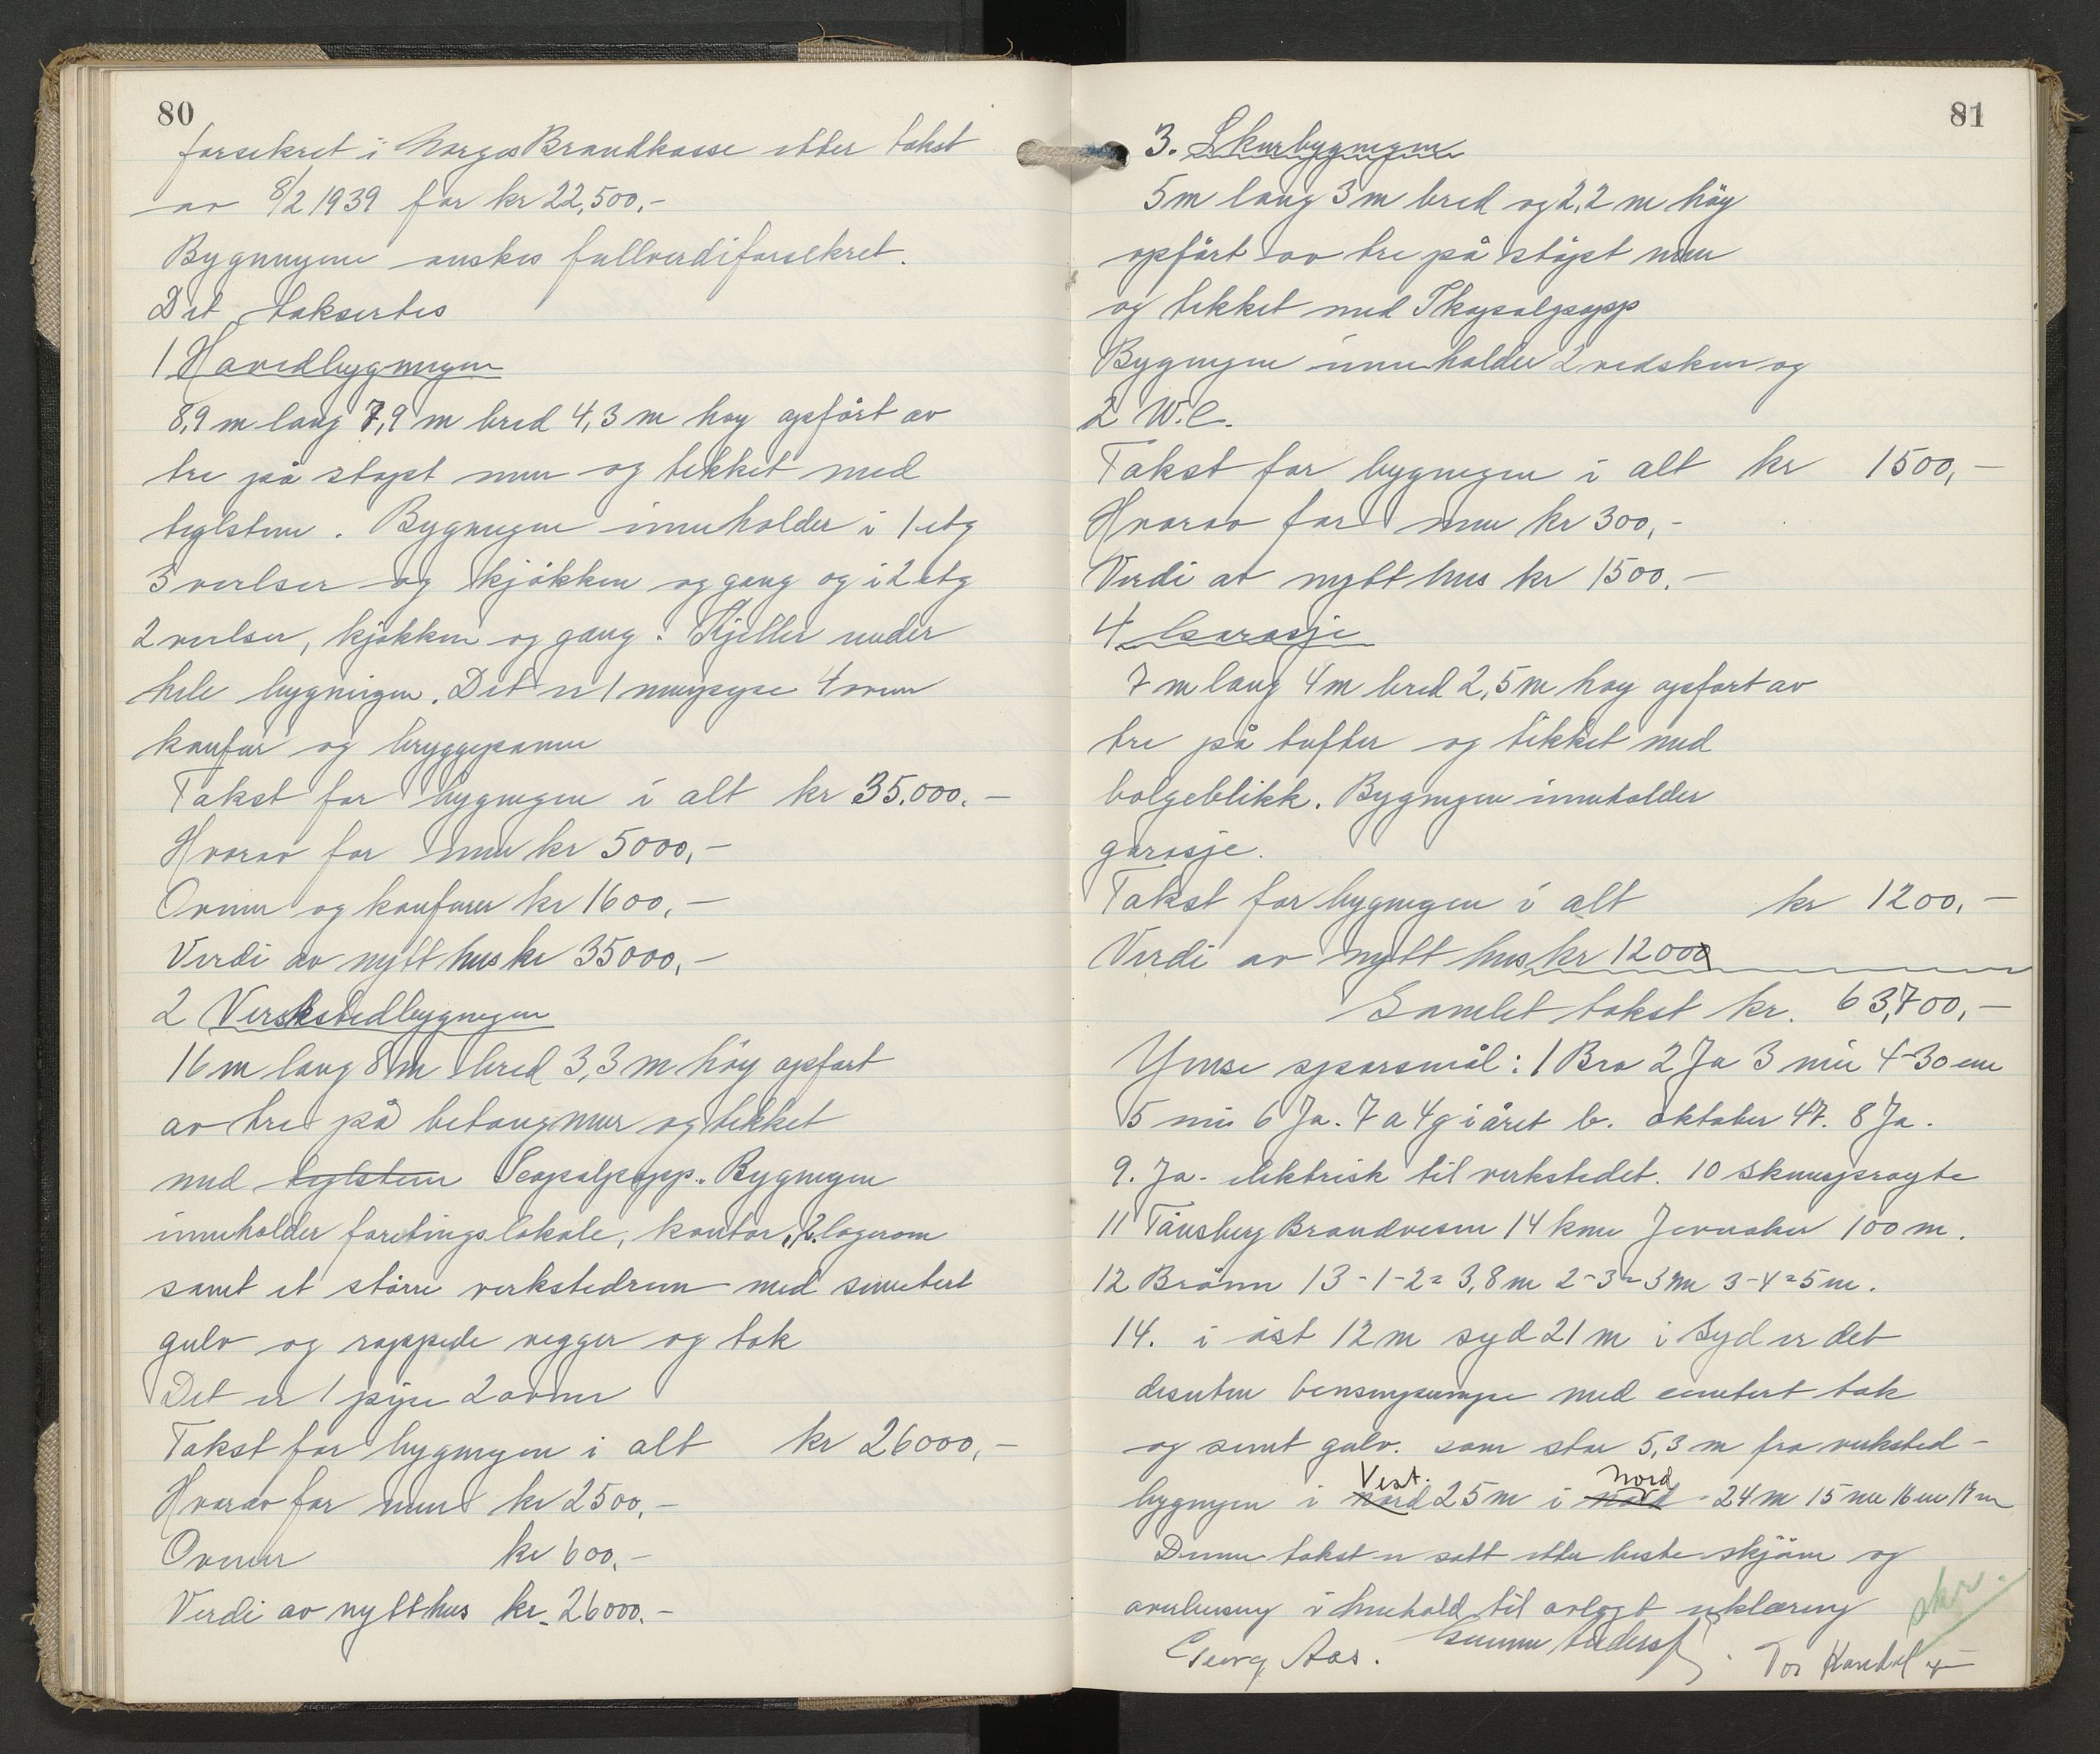 80
forsikret i Norges Brandkasse etter takst
av 8/2 1939 for kr 22,500,-
Bygningene ønskes fullverdiforsikret.
Det taksertes
1 Hovedbygningen
8,9 m lang 7,9 m bred 4,3 m høy opført av
tre på støpt mur og tekket med
teglsten. Bygningen inneholder i 1 etg
3 verlser og kjøkken og gang og i 2 etg
2 verlser, kjøkken og gang. Kjeller under
hele bygningen. Det er 1 murpipe 4 ovner
komfur og bryggepanne
Takst for bygningen i alt kr 35.000.-
Hvorav for mur kr 5000,-
Ovner og komfurer kr 1600,-
Verdi av nytt hus kr 35000,-
2 Verkstedbygningen
16 m lang 8 m bred 3,3 m høy opført
av tre på betongmur og tekket
med teglsten Bygningen
inneholder foretingslokale, kontor, 2 lagerom
samt et større verkstedrum med sementert
gulv og rappede vegger og tak
Det er 1 pipe 2 ovner
Takst for bygningen i alt kr 26000,-
Hvorav for mur kr 2500,-
Ovner kr 600,-
Verdi av nytt hus kr. 26000.-
81
3. Skurbygningen
5 m lang 3 m bred og 2,2 m høy
opført av tre på støpt mur
og tekket med
Bygningen inneholder 2 vedskur og
2 W.C.
Takst for bygningen i alt kr 1500,-
Hvorav for mur kr 300,-
Verdi av nytt hus kr 1500.-
4 Garasje
7 m lang 4 m bred 2,5 m høy opført av
tre på tufter og tekket med
bølgeblikk. Bygningen inneholder
garasje.
Takst for bygningen i alt kr 1200,-
Verdi av nytt hus kr 1200
Samlet takst kr. 63,700,-
Ymse spørsmål: 1 Bra 2 Ja 3 nei 4-30 cm
5 nei 6 Ja. 7 a 4 g i året b. oktober 47. 8 Ja.
9. Ja. elektrisk til verkstedet. 10 Skumsprøyte
11 Tønsberg Brandvesen 14 km Jernaker 100 m.
12 Brønn 13 - 1-2 = 3,8 m 2-3 = 3 m 3-4 = 5 m.
14. i øst 12 m syd 21 m i Syd er det
desuten bensinpumpe med sementert tak
og sement gulv. som står 5,3 m fra verksted-
bygningen i nord Vest. 25 m i nord - 24 m 15 nei 16 nei 17 nei
Denne takst er satt etter beste skjønn og
overbevisning i henhold til avlagt erklæring
Georg Aas. Gunnar Anderssen. Tor
skr.